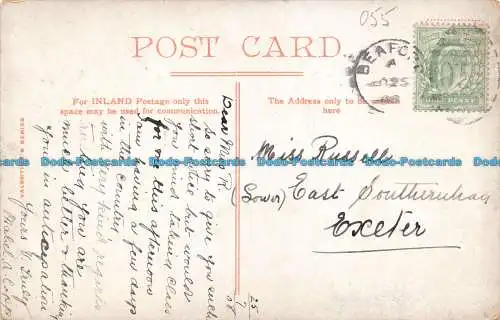 055
POST CARD.
BEAFO
A
25
For INLAND Postage only this
space may be used for communication.
The Address only to be
here
VALENTINE'S SERIES
Dear Miss R
So sorry to give you such
short notice, but would
you mind taking class
for me this afternoon
am having a few days
in the country.
with very kind regards
you are
much better & thanking
you in anticipation
Yours V. Truly
Mabel A.
25
7
08
Miss Russells
(Lower) East Southernhay
Exeter
Postcards